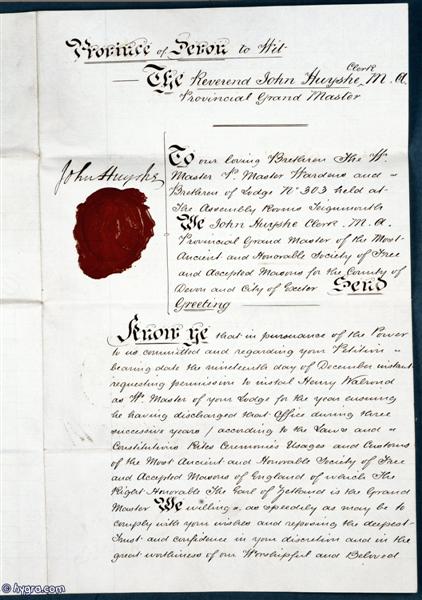 Province of Devon to Wit
Clerk
The Reverend John Huyshe M. A.
Provincial Grand Master
John Huyshe
To our loving Brethren The W.
Master P. Master Wardens and
Brethren of Lodge No 303 held at
The Assembly Rooms Teignmouth
We John Huyshe Clerk. M. A.
Provincial Grand Master of the Most
Ancient and Honorable Society of Free
and Accepted Masons for the County of
Devon and City of Exeter Send
Greeting
Know Ye that in pursuance of the Power
to us committed and regarding your Petition
bearing date the nineteenth day of December instant
requesting permission to instal Henry Walrond
as W. Master of your Lodge for the year ensuing
he having discharged that Office during three
successive years / according to the Laws and
Constitutions Rites Ceremonies Usages and Customs
of the Most Ancient and Honorable Society of Free
and Accepted Masons of England of which The
Right Honorable The Earl of Zetland is the Grand
Master We willing as speedily as may be to
comply with your wishes and reposing the deepest
trust and confidence in your discretion and in the
great worthiness of our Worshipful and Beloved
© hygra.com